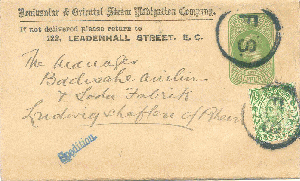 Peninsular & Oriental Steam Navigation Company.
If not delivered please return to
122, LEADENHALL STREET, E. C.
The Manager
Badische Anilin
& Soda Fabrik
Ludwigshafen of Rhein
Spedition.